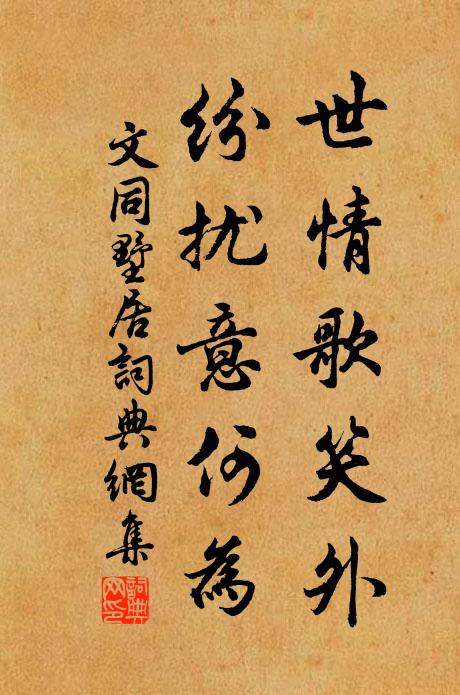 世情歌笑外
纷扰意何為
文同墅居詞典網集
詞典
网印